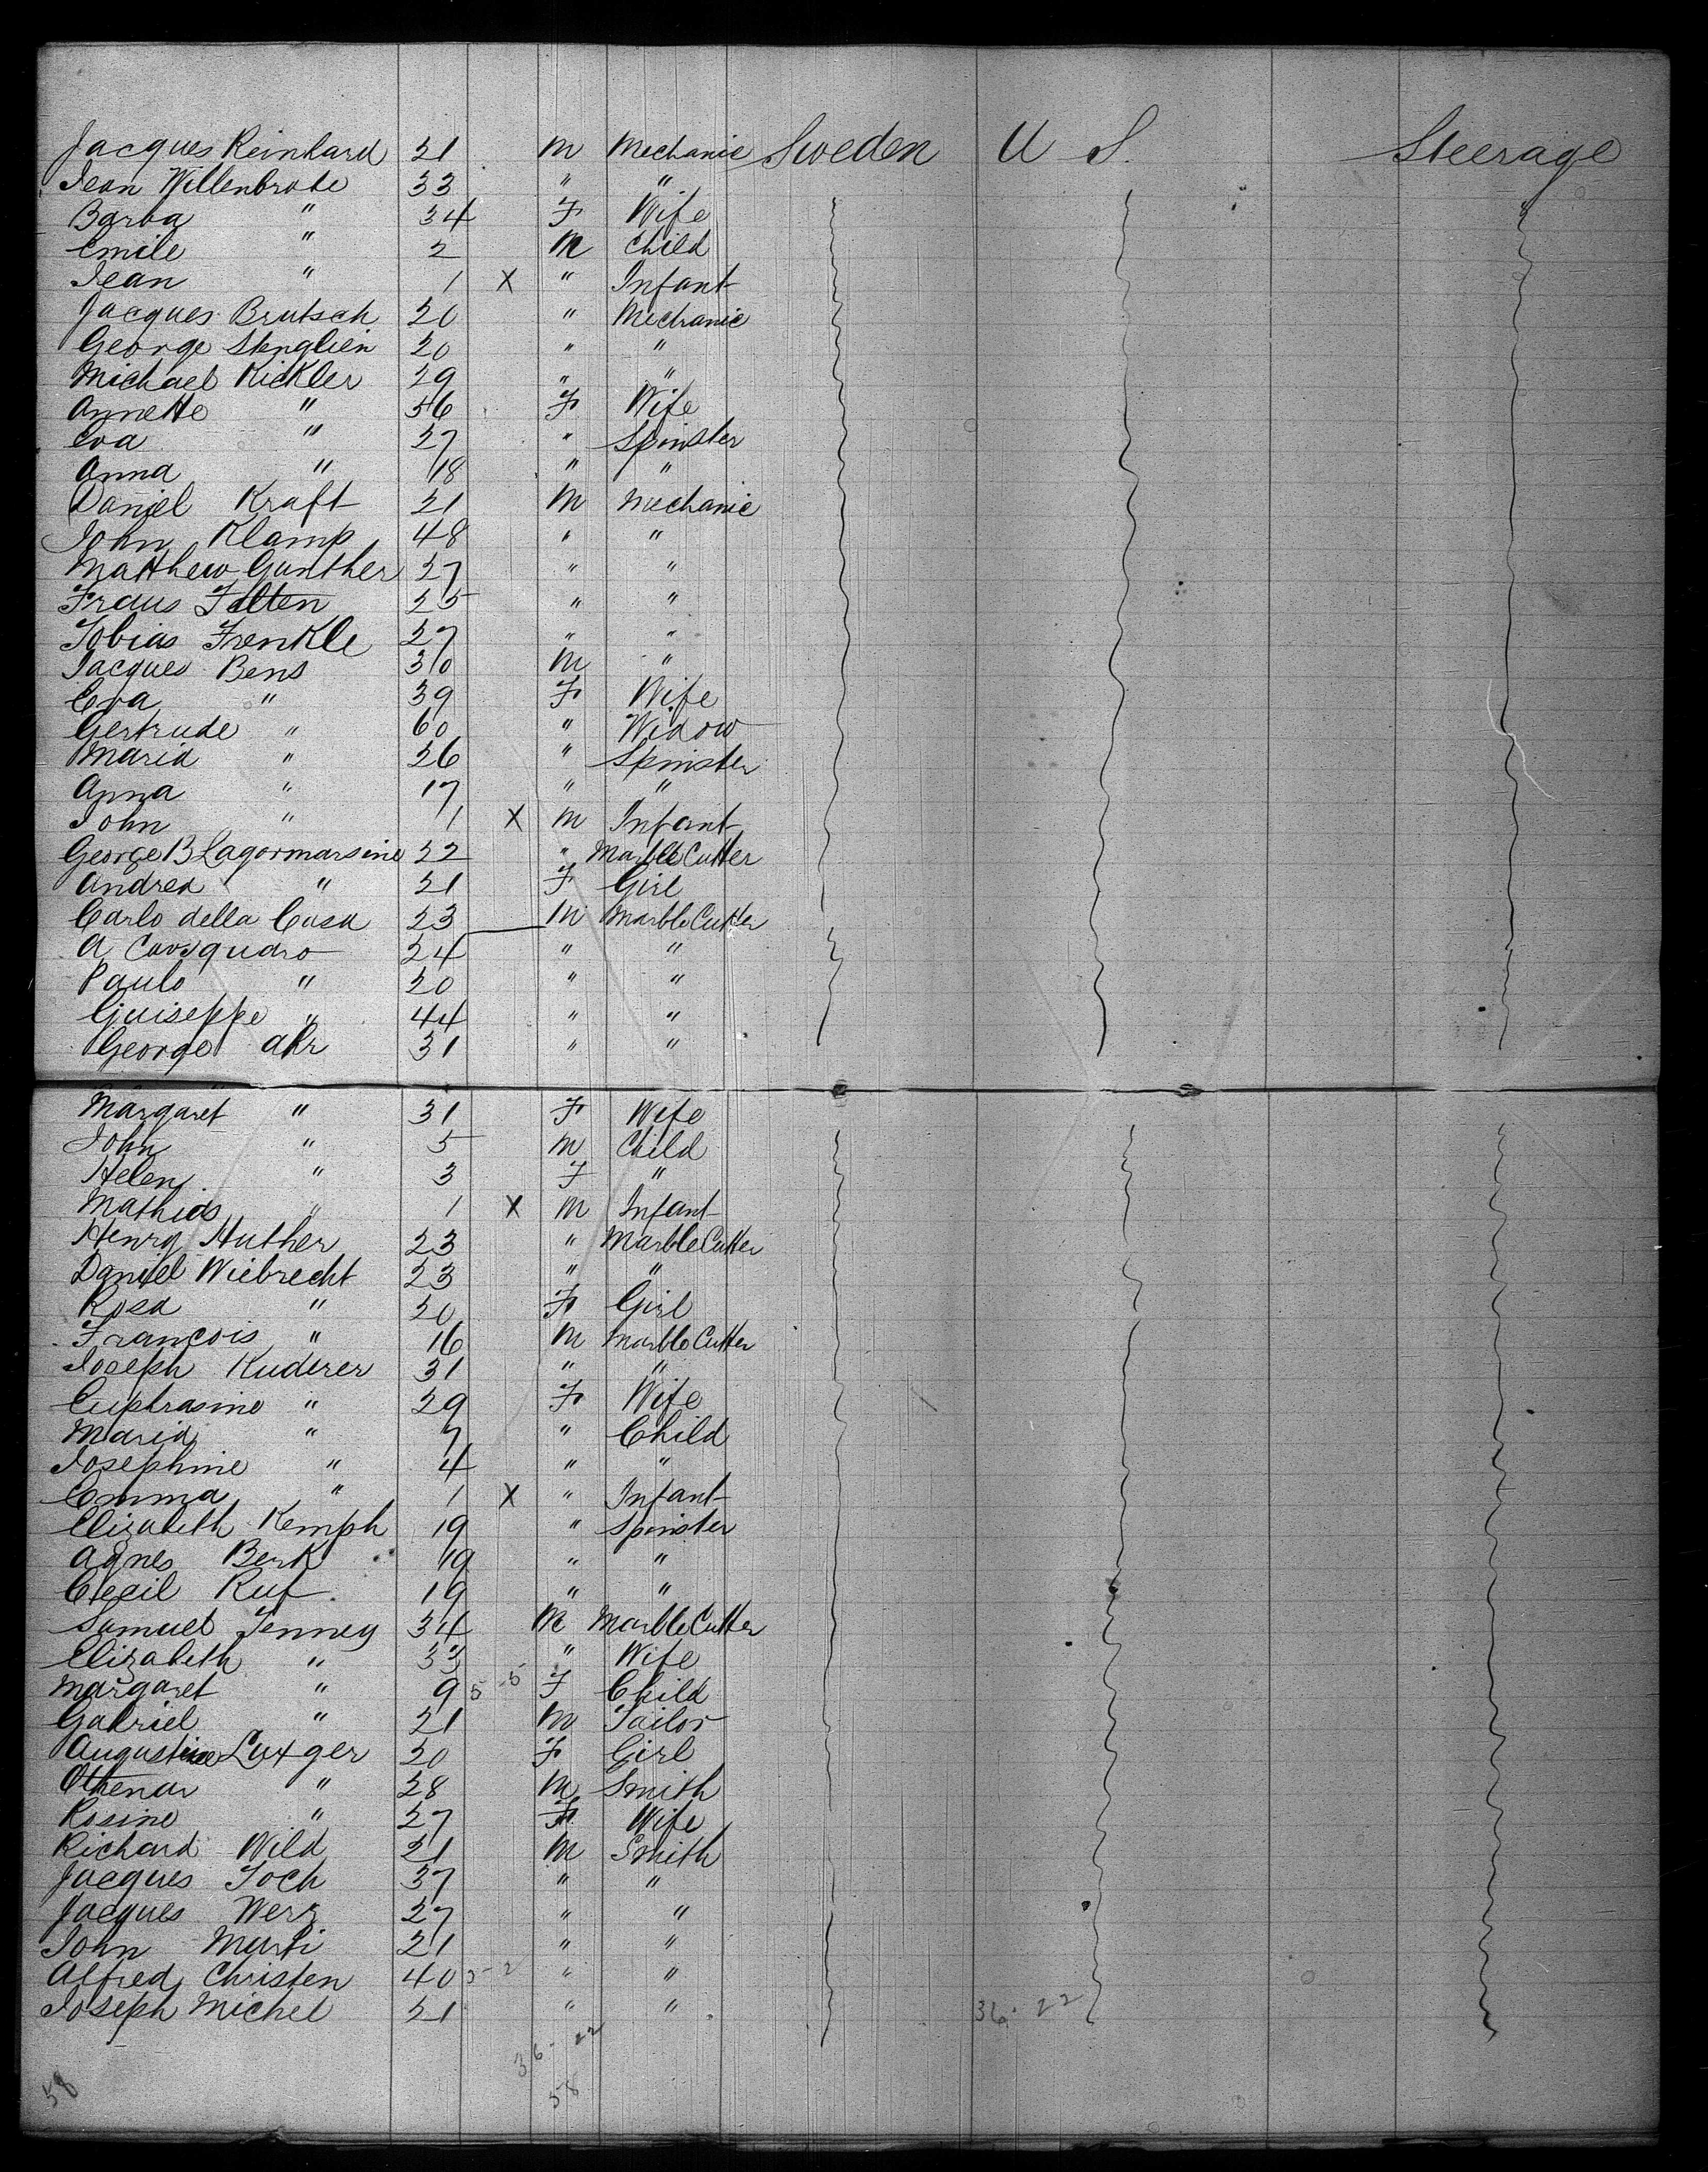 Jacques Reinhard 21 M Mechanic Sweden U S. Steerage
Jean Willenbrode 33 " "
Barba " 34 F Wife
Emile " 2 M Child
Jean " 1 X " Infant
Jacques Brutsch 20 " Mechanic
George Stenglien 20 " "
Michael Kickler 29 " "
Annette " 56 F Wife
Eva " 27 " Spinster
Anna " 18 " "
Daniel Kraft 21 M Mechanic
John Klamp 48 " "
Matthew Gunther 27 " "
Fraus Felten 25 " "
Tobias Frenkle 27 " "
Jacques Bens 30 M "
Eva " 39 F Wife
Gertrude " 60 " Widow
Maria " 26 " Spinster
Anna " 17 " "
John " 1 X M Infant
George B Lagormarsine 22 " Marble Cutter
Andrea " 21 F Girl
Carlo della Casa 23 M Marble Cutter
A Cavsquaro 24 " "
Paulo " 20 " "
Guiseppe " 44 " "
George Ahr 31 " "
Margaret " 31 F Wife
John " 5 M Child
Helen " 3 F "
Mathias " 1 X M Infant
Henry Huther 23 " Marble Cutter
Daniel Wiebrecht 23 " "
Rosa " 20 F Girl
Francois " 16 M Marble Cutter
Joseph Kuderer 31 " "
Euphrasine " 29 F Wife
Maria " 7 " Child
Josephine " 4 " "
Emma " 1 X " Infant
Elizabeth Kemph 19 " Spinster
Agnes Berk 19 " "
Cecil Ruf 19 " "
Samuel Jenney 34 M Marble Cutter
Elizabeth " 33 " Wife
Margaret " 9 5-5 F Child
Gabriel " 21 M Tailor
Augustine Luxger 20 F Girl
Othenar " 28 M Smith
Rosine " 27 F Wife
Richard Wild 21 M Smith
Jacques Joch 37 " "
Jacques Werz 27 " "
John Marti 21 " "
Alfred Christen 40 5-2 " "
Joseph Michel 21 " " 36-22
36-22
58 58